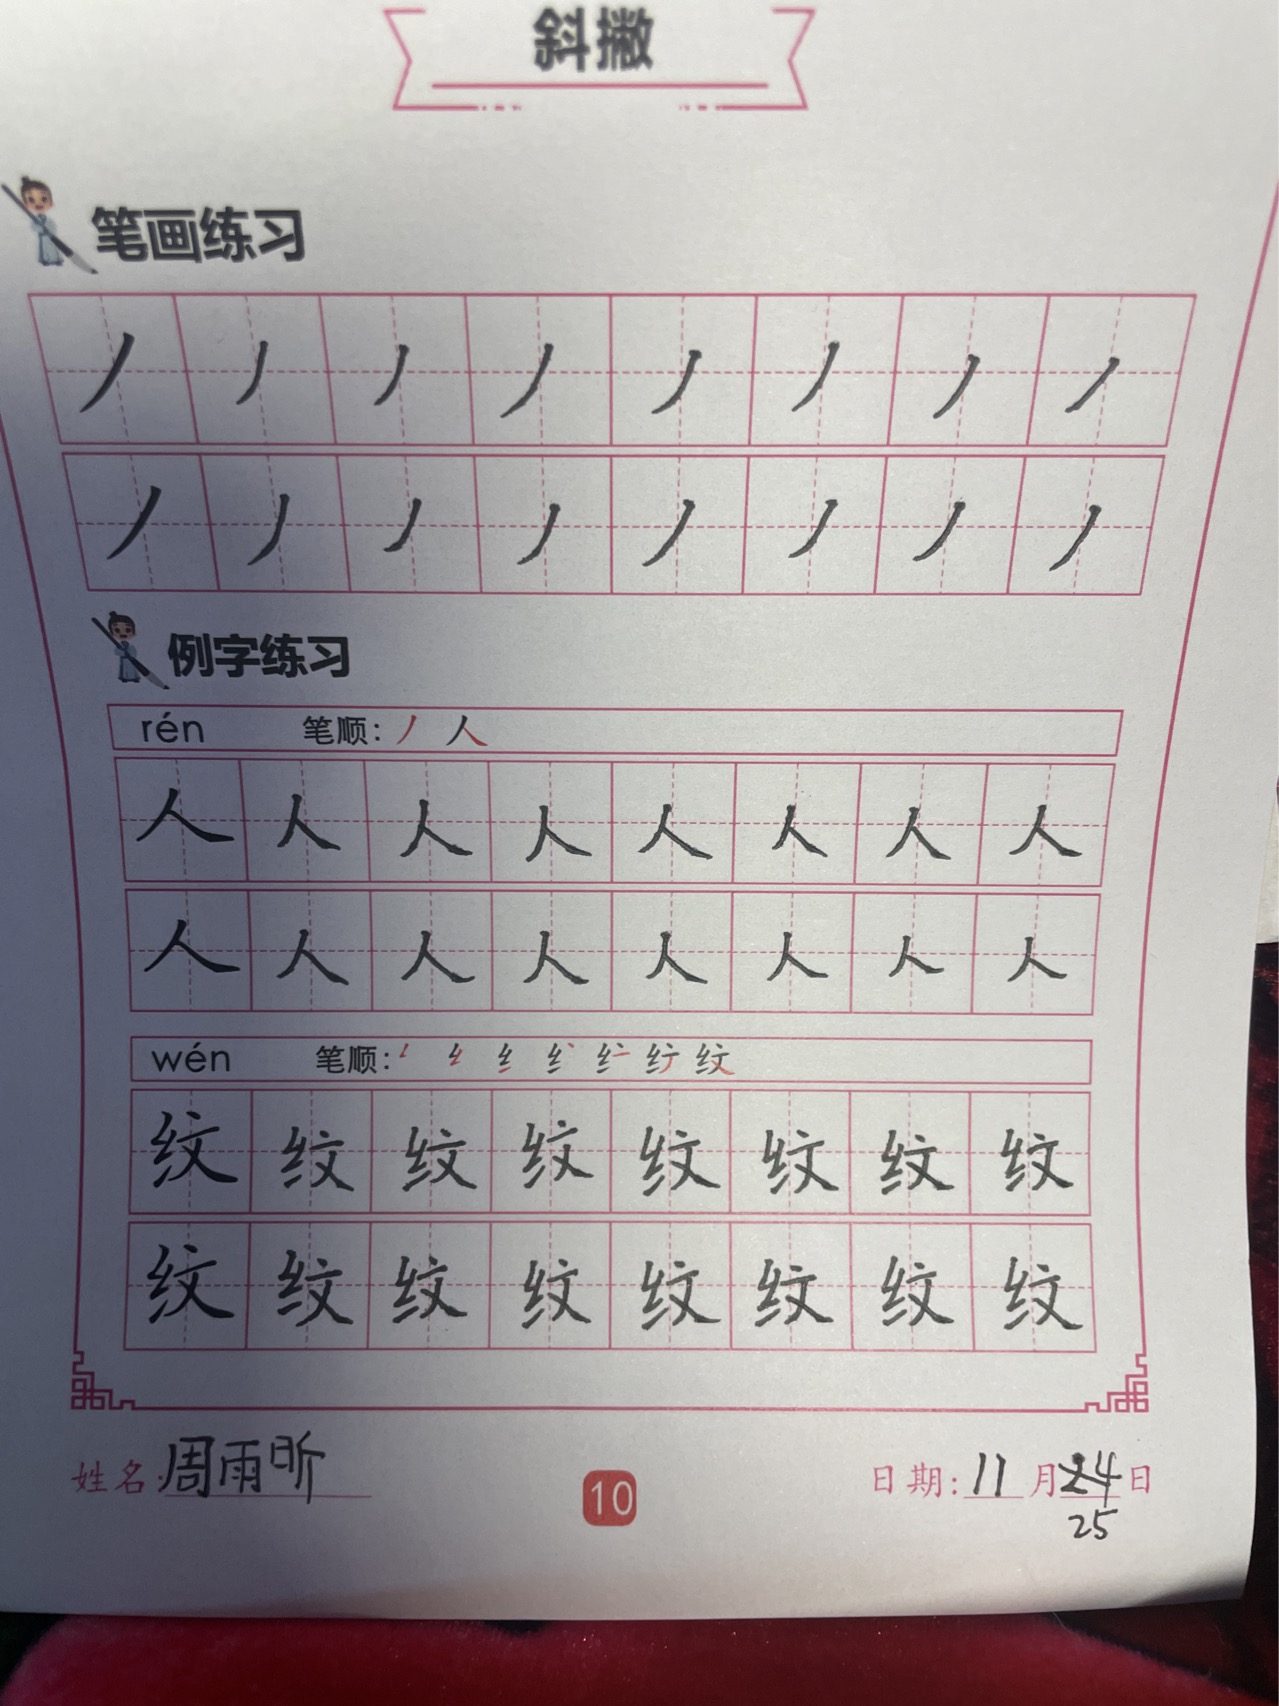 斜撇
笔画练习
丿丿丿丿丿丿丿丿
丿丿丿丿丿丿丿丿
例字练习
rén 笔顺：丿 人
人人人人人人人人
人人人人人人人人
wén 笔顺：
纹纹纹纹纹纹纹纹
纹纹纹纹纹纹纹纹
姓名：周雨昕
10
日期：11月24日
25